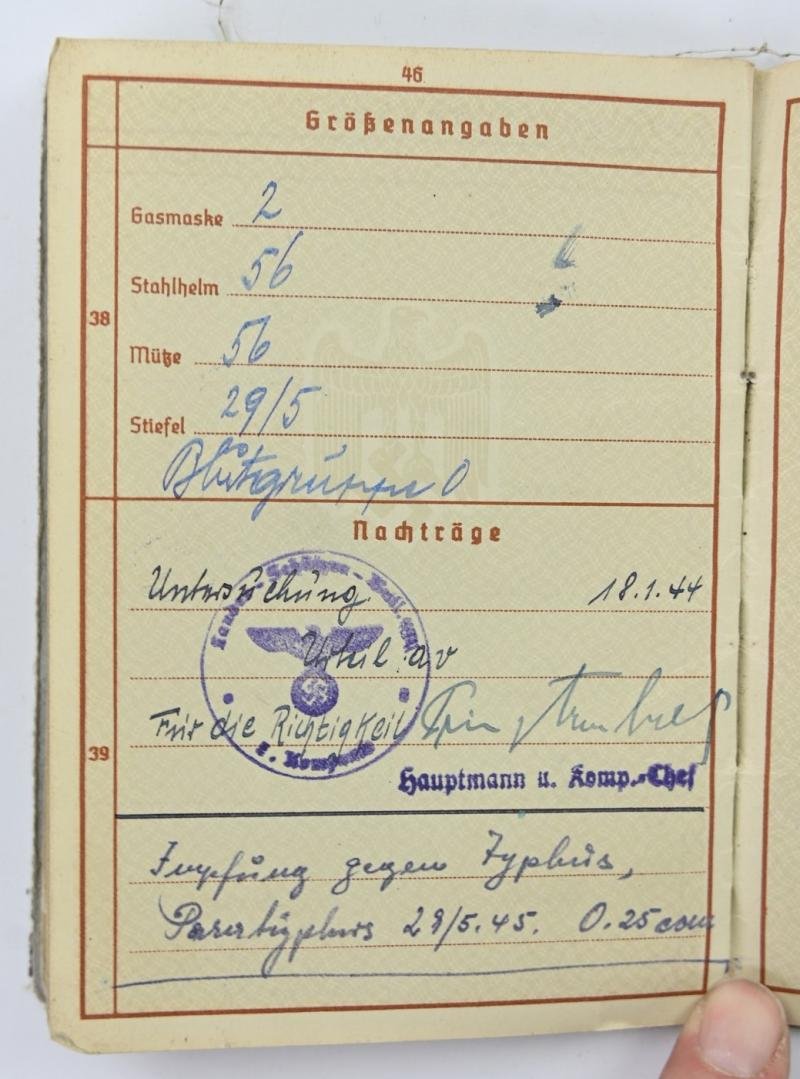 46
Größenangaben
Gasmaske 2
Stahlhelm 56
38
Mütze 56
Stiefel 29/5
Blutgruppe 0
Nachträge
Untersuchung 18.1.44
Urteil: av
Für die Richtigkeit
39
Hauptmann u. Komp.-Chef
Impfung gegen Typhus,
Paratyphus 28/5.45. 0.25 ccm